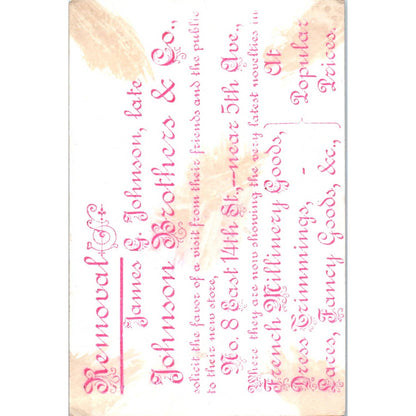 Removal
James G. Johnson, late
Johnson Brothers & Co.,
solicit the favor of a visit from their friends and the public
to their new store,
No. 8 East 14th St.,—near 5th Ave.,
Where they are now showing the very latest novelties in
French Millinery Goods,
Dress Trimmings, -
Laces, Fancy Goods, &c.,
At
Popular
Prices.